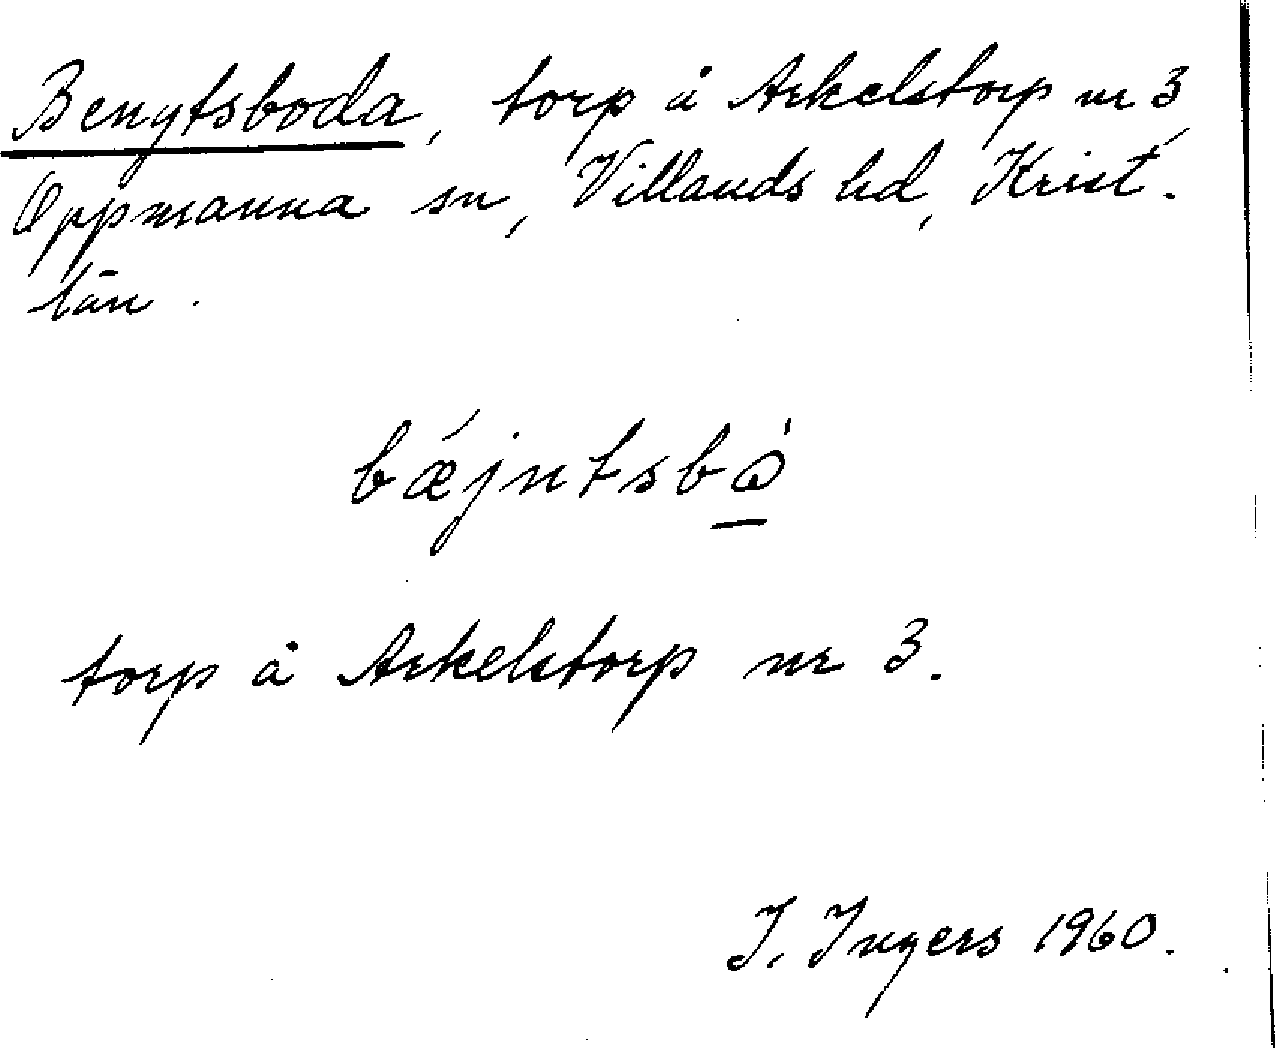 Bengtsboda, torp å Arkelstorp nr 3,
Oppmanna sn, Villands hd, Krist.
län.
bǽjntsbò̱
torp å Arkelstorp nr 3.
I. Ingers 1960.